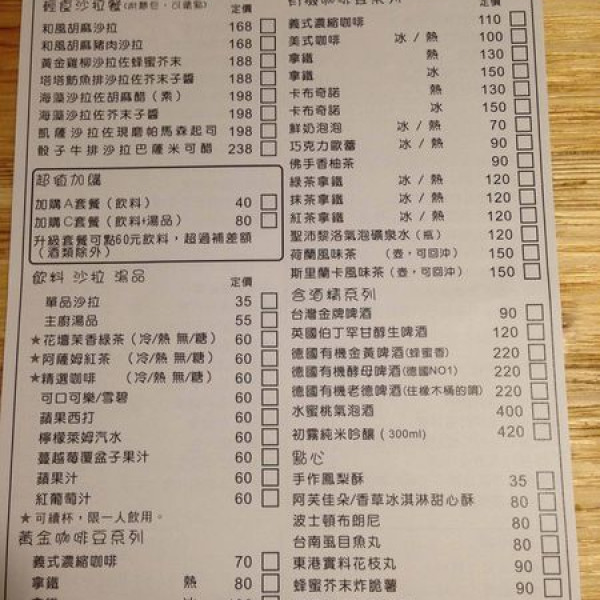 輕食沙拉餐(附麵包，可續點) 定價
和風胡麻沙拉 168
和風胡麻豬肉沙拉 168
黃金雞柳沙拉佐蜂蜜芥末 188
塔塔魴魚排沙拉佐芥末子醬 188
海藻沙拉佐胡麻醋（素） 198
海藻沙拉佐芥末子醬 198
凱薩沙拉佐現磨帕馬森起司 198
骰子牛排沙拉巴薩米可醋 238
超值加購
加購A套餐（飲料） 40
加購C套餐（飲料+湯品） 80
升級套餐可點60元飲料，超過補差額
（酒類除外）
飲料 沙拉 湯品 定價
單品沙拉 35
主廚湯品 55
★花壇茉香綠茶（冷/熱 無/糖） 60
★阿薩姆紅茶（冷/熱 無/糖） 60
★精選咖啡（冷/熱 無/糖） 60
可口可樂/雪碧 60
蘋果西打 60
檸檬萊姆汽水 60
蔓越莓覆盆子果汁 60
蘋果汁 60
紅葡萄汁 60
★可續杯，限一人飲用。
黃金咖啡豆系列 定價
義式濃縮咖啡 70
拿鐵 熱 80
拿鐵 冰
有機咖啡豆系列 定價
義式濃縮咖啡 110
美式咖啡 冰 / 熱 100
拿鐵 熱 130
拿鐵 冰 150
卡布奇諾 熱 130
卡布奇諾 冰 150
鮮奶泡泡 冰 / 熱 70
巧克力歐蕾 冰 / 熱 90
佛手香柚茶 90
綠茶拿鐵 冰 / 熱 120
抹茶拿鐵 冰 / 熱 120
紅茶拿鐵 冰 / 熱 120
聖沛黎洛氣泡礦泉水（瓶） 120
荷蘭風味茶 （壺，可回沖） 150
斯里蘭卡風味茶（壺，可回沖） 150
含酒精系列
台灣金牌啤酒 90
英國伯丁罕甘醇生啤酒 120
德國有機金黃啤酒(蜂蜜香) 220
德國有機酵母啤酒(德國NO1) 220
德國有機老德啤酒(住橡木桶的唷) 220
水蜜桃氣泡酒 400
初霧純米吟釀（300ml） 420
點心
手作鳳梨酥 35
阿芙佳朵/香草冰淇淋甜心酥 80
波士頓布朗尼 80
台南虱目魚丸 80
東港實料花枝丸 90
蜂蜜芥末炸脆薯 90